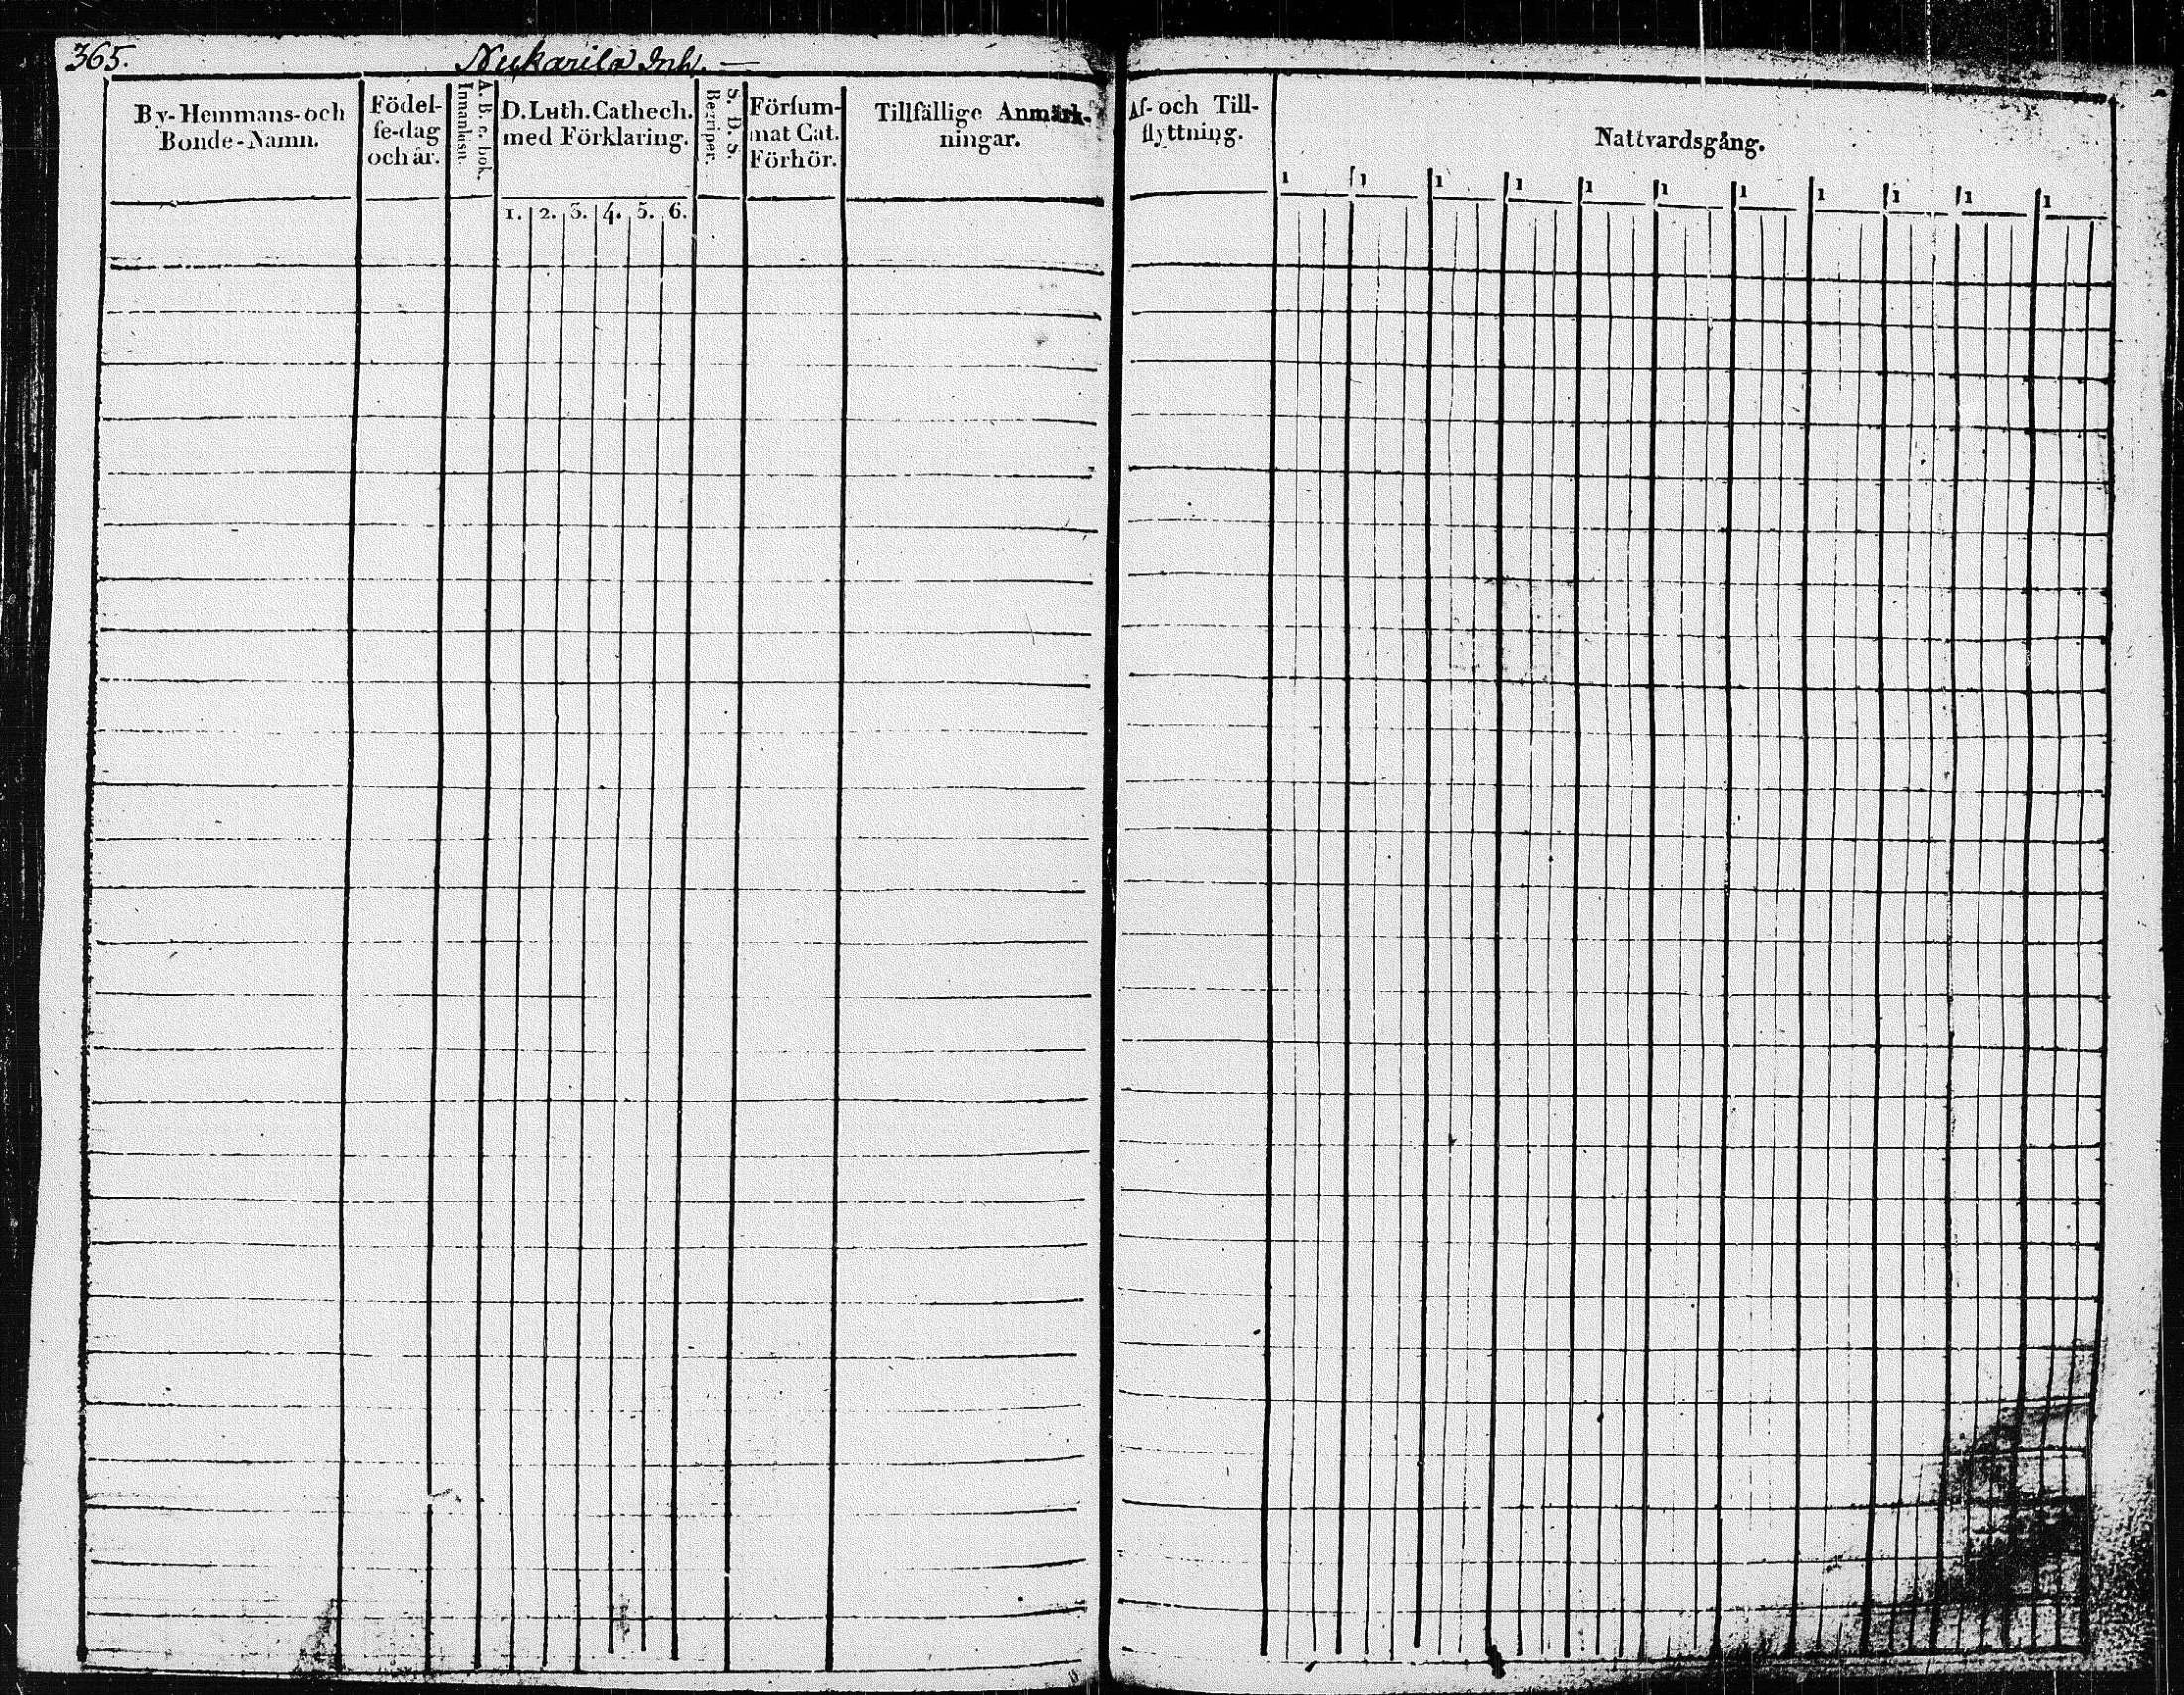 365.
Nukarila Inh. —
By-Hemmans-och
Bonde-Namn.
Födel-
se-dag
och år.
A. B. c. bok.
Innanläsn.
D. Luth. Cathech.
med Förklaring.
1. 2. 3. 4. 5. 6.
S. D. S.
Begriper.
Försum-
mat Cat.
Förhör.
Tillfällige Anmärk-
ningar.
Af- och Till-
flyttning.
Nattvardsgång.
1 1 1 1 1 1 1 1 1 1 1